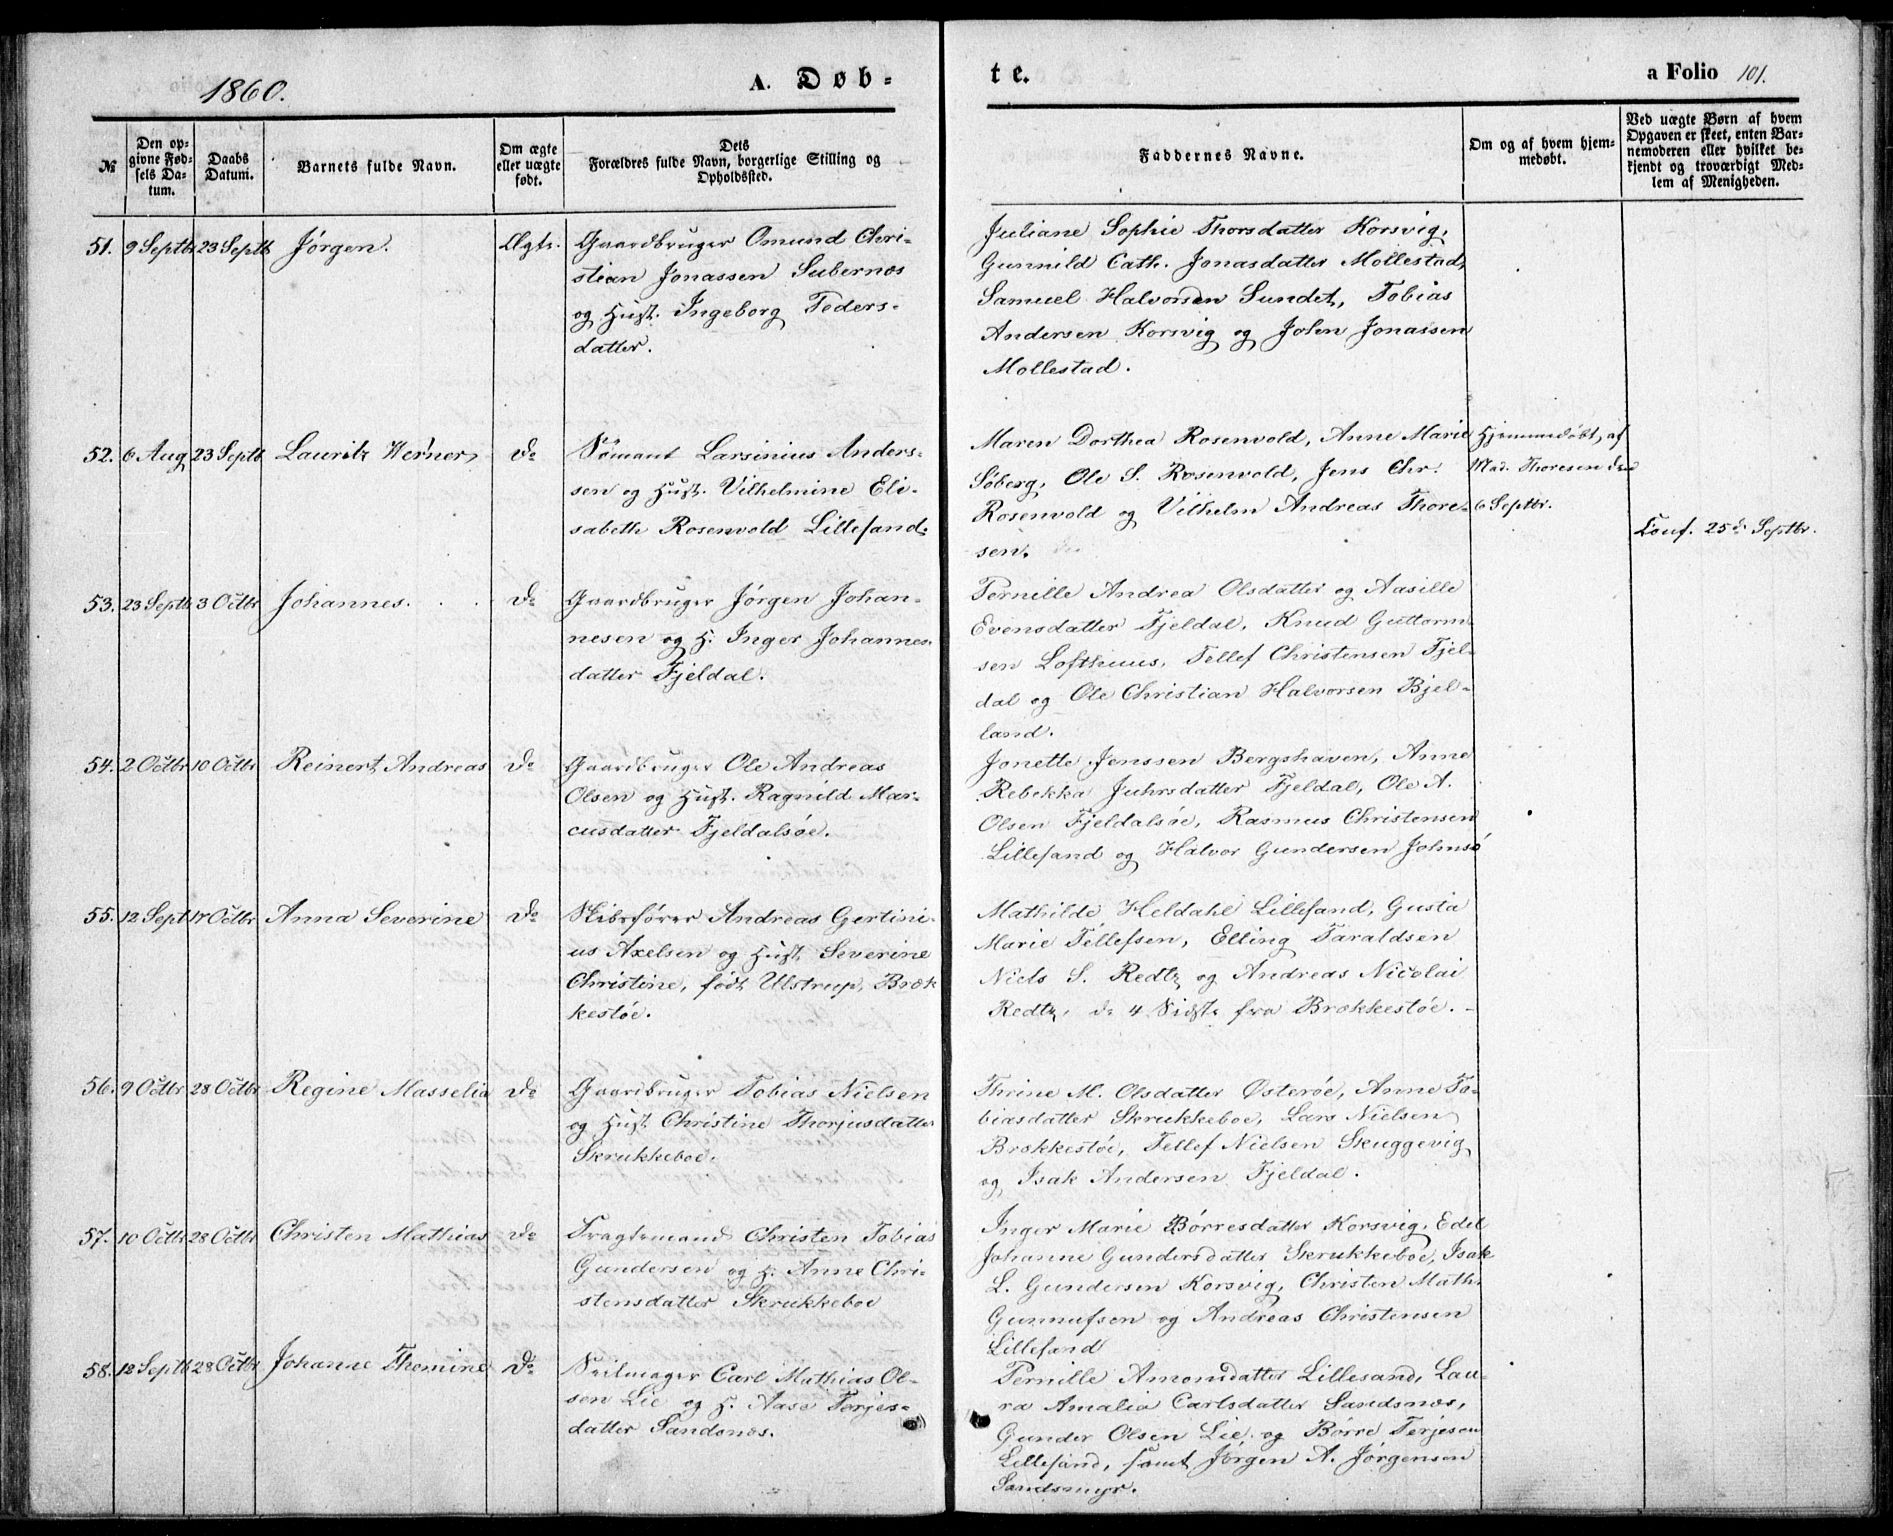 1860.
A. Døb-
te.
a Folio 101.
№
Den op-
givne Fød-
sels Da-
tum.
Daabs
Datum.
Barnets fulde Navn.
Om ægte
eller uægte
født.
Dets
Forældres fulde Navn, borgerlige Stilling og
Opholdssted.
Faddernes Navne.
Om og af hvem hjem-
medøbt.
Ved uægte Børn af hvem
Opgaven er skeet, enten Bar-
nemoderen eller hvilket be-
kjendt og troværdigt Med-
lem af Menigheden.
51. 9 Septbr 23 Septb Jørgen. Ægte. Gaardbruger Omund Chri-
stian Jonassen Subernæs
og Hust. Ingeborg Peders-
datter.
Juliane Sophie Thorsdatter Korsvig,
Gunnild Cath. Jonasdatter Mollestad,
Samuel Halvorsen Sundet, Tobias
Andersen Korsvig og John Jonassen
Mollestad.
52. 6 Aug 23 Septb Lauritz Werner do Sømand Larsinius Anders-
sen og Hust. Vilhelmine Eli-
sabeth Rosenvold Lillesand.
Maren Dorthea Rosenvold, Anne Marie
Søberg, Ole S. Rosenvold, Jens Chr.
Rosenvold og Vilhelm Andreas Thore-
sen.
Hjemmedøbt af
Mad. Thoresen den
6 Septbr.
Conf. 25d. Septbr.
53. 23 Septb 3 Octbr Johannes. do Gaardbruger Jørgen Johan-
nesen og H. Inger Johannes-
datter Fjeldal.
Pernille Andrea Olsdatter og Aasille
Evensdatter Fjeldal, Knud Guttorm-
sen Lofthuus, Tellef Christensen Fjel-
dal og Ole Christian Halvorsen Bjel-
land.
54. 2 Octbr 10 Octbr Reinert Andreas do Gaardbruger Ole Andreas
Olsen og Hust. Ragnild Mar-
cusdatter Fjeldalsøe.
Jonette Jenssen Bergshaven, Anne
Rebekka Juhrsdatter Fjeldal, Ole A.
Olsen Fjeldalsøe, Rasmus Christensen
Lillesand og Halvor Gundersen Johnsø
55. 12 Sept 17 Octbr Anna Severine do Skibsfører Andreas Gertini-
us Axelsen og Hust. Severine
Christine, født Ulstrup, Bræk
kestøe.
Mathilde Heldahl Lillesand, Gusta
Marie Tellefsen, Elling Taraldsen
Niels S. Redtz og Andreas Nicolai
Redtz, de 4 Sidste fra Brækkestøe.
56. 9 Octbr 28 Octbr Regine Masselia do Gaardbruger Tobias Nielsen
og Hust Christine Thorjusdatter
Skrukkeboe.
Thrine M. Olsdatter Østerøe, Anne To-
biasdatter Skrukkeboe, Lars Nielsen
Brækkestøe, Tellef Nielsen Skuggevig
og Isak Andersen Fjeldal.
57. 10 Octbr 28 Octbr Christen Mathias do Fragtemand Christen Tobias
Gundersen og H. Anne Chri-
stensdatter Skrukkeboe
Inger Marie Børresdatter Korsvig, Edel
Johanne Gundersdatter Skrukkeboe, Isak
L. Gundersen Korsvig, Christen Math.
Gunnufsen og Andreas Christensen
Lillesand
58. 12 Septb 28 Octbr Johanne Thomine do Seilmager Carl Mathias Ol-
sen Lie og H. Aase Terjes-
datter Sandsnæs.
Pernille Amonsdatter Lillesand, Lau-
ra Amalia Carlsdatter Sandsnæs,
Gunder Olsen Lie og Børre Terjesen
Lillesand, samt Jørgen A. Jørgensen
Sandsmyr.